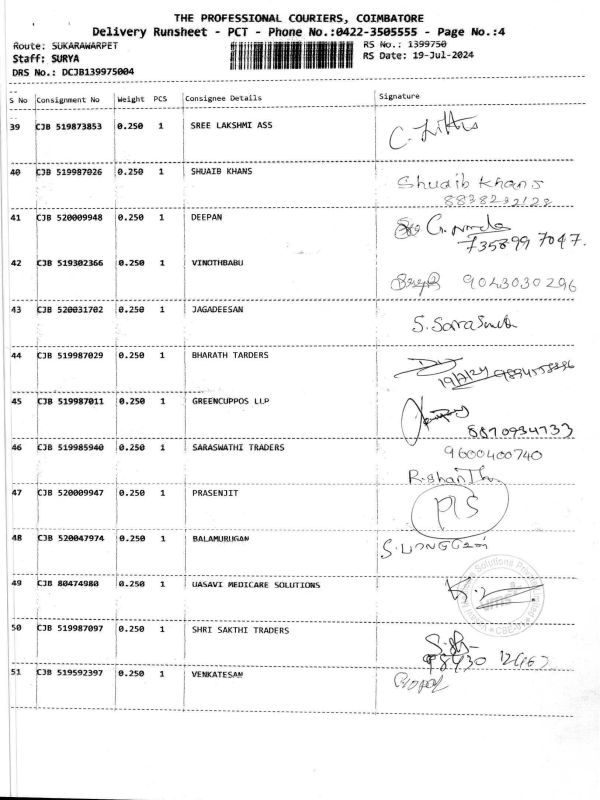 THE PROFESSIONAL COURIERS, COIMBATORE
Delivery Runsheet - PCT - Phone No.:0422-3505555 - Page No.:4
Route: SUKARAWARPET RS No.: 1399750
Staff: SURYA RS Date: 19-Jul-2024
DRS No.: DCJB139975004
S No Consignment No Weight PCS Consignee Details Signature
39 CJB 519873853 0.250 1 SREE LAKSHMI ASS
40 CJB 519987026 0.250 1 SHUAIB KHANS Shuaib Khans
41 CJB 520009948 0.250 1 DEEPAN
735899 7047.
42 CJB 519302366 0.250 1 VINOTHBABU 9043030296
43 CJB 520031702 0.250 1 JAGADEESAN
44 CJB 519987029 0.250 1 BHARATH TARDERS
45 CJB 519987011 0.250 1 GREENCUPPOS LLP
8870934733
46 CJB 519985940 0.250 1 SARASWATHI TRADERS 9600400740
47 CJB 520009947 0.250 1 PRASENJIT
48 CJB 520047974 0.250 1 BALAMURUGAN
49 CJB 80474980 0.250 1 UASAVI MEDICARE SOLUTIONS
50 CJB 519987097 0.250 1 SHRI SAKTHI TRADERS
51 CJB 519592397 0.250 1 VENKATESAN